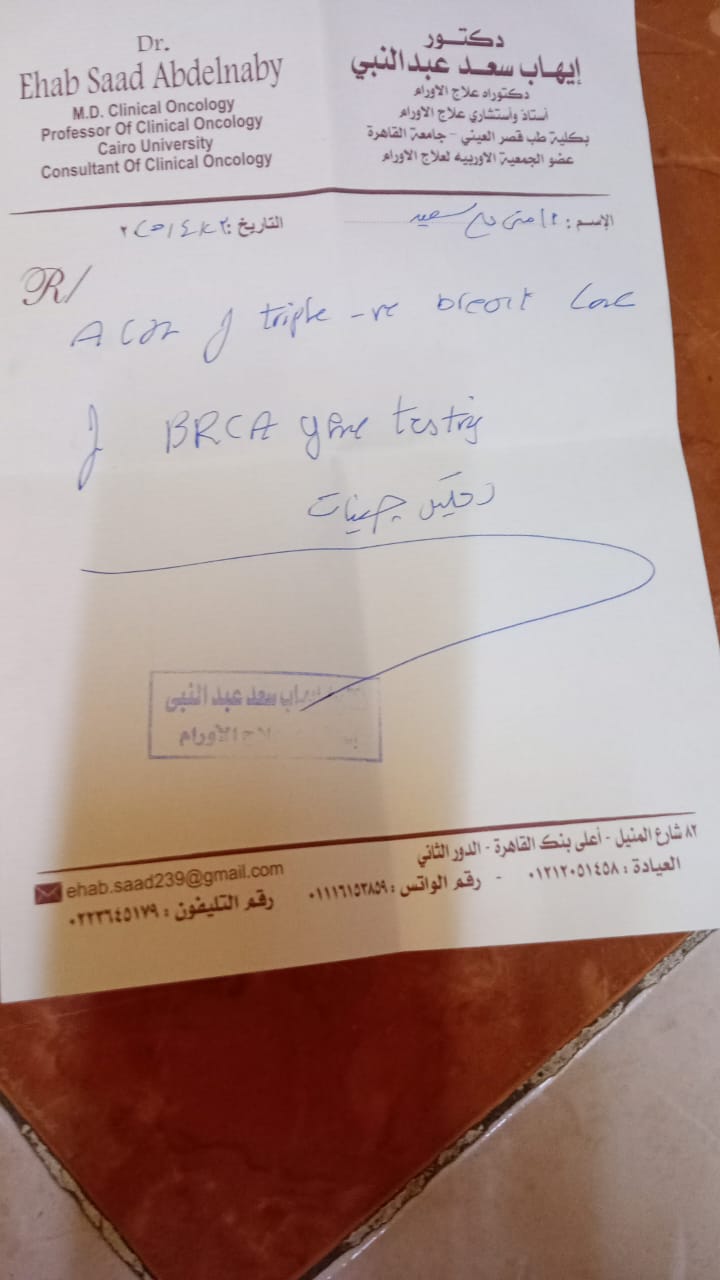 Dr.
Ehab Saad Abdelnaby
M.D. Clinical Oncology
Professor Of Clinical Oncology
Cairo University
Consultant Of Clinical Oncology
دكتور
إيهاب سعد عبد النبي
دكتوراه علاج الاورام
أستاذ وأستشاري علاج الاورام
بكلية طب قصر العيني - جامعة القاهرة
عضو الجمعية الاوربيه لعلاج الاورام
الإسم :
التاريخ :
R/
A case of triple -ve breast
BRCA gene testing
تحليل جينات
سعد عبد النبى
علاج الأورام
٨٢ شارع المنيل - أعلى بنك القاهرة - الدور الثاني
العيادة : ٠١٢١٢٠٥١٤٥٨ - رقم الواتس : ٠١١١٦١٥٢٨٥٩
ehab.saad239@gmail.com
رقم التليفون : ٠٢٢٣٦٤٥١٧٩